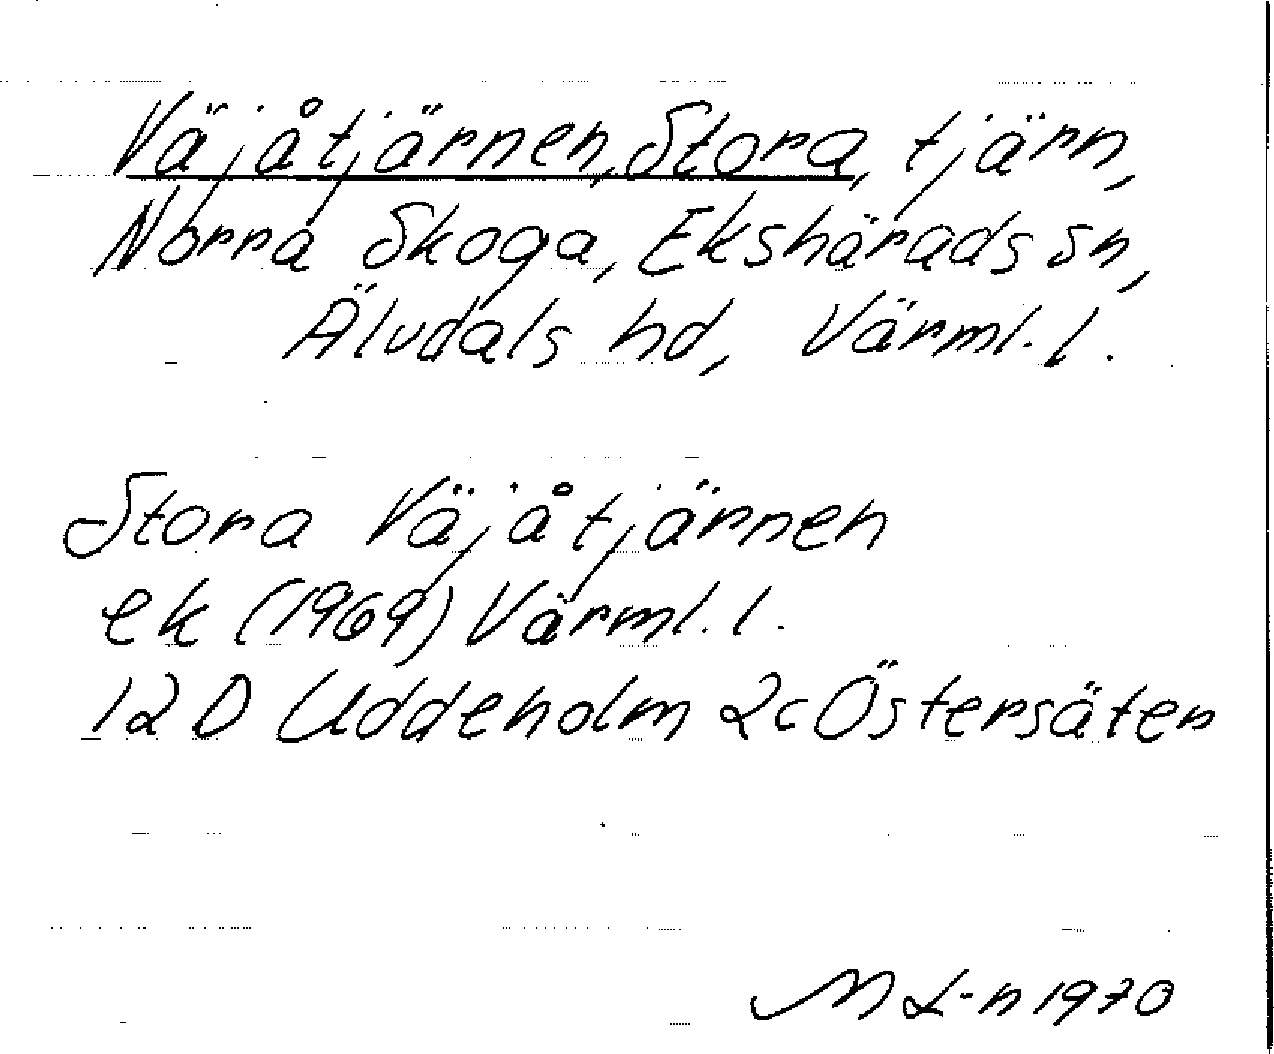 Väjåtjärnen, Stora, tjärn,
Norra Skoga, Ekshärads sn,
Älvdals hd, Värml. l.
Stora Väjåtjärnen
ek (1969) Värml. l.
12 D Uddeholm 2c Östersäter
M L-n 1970